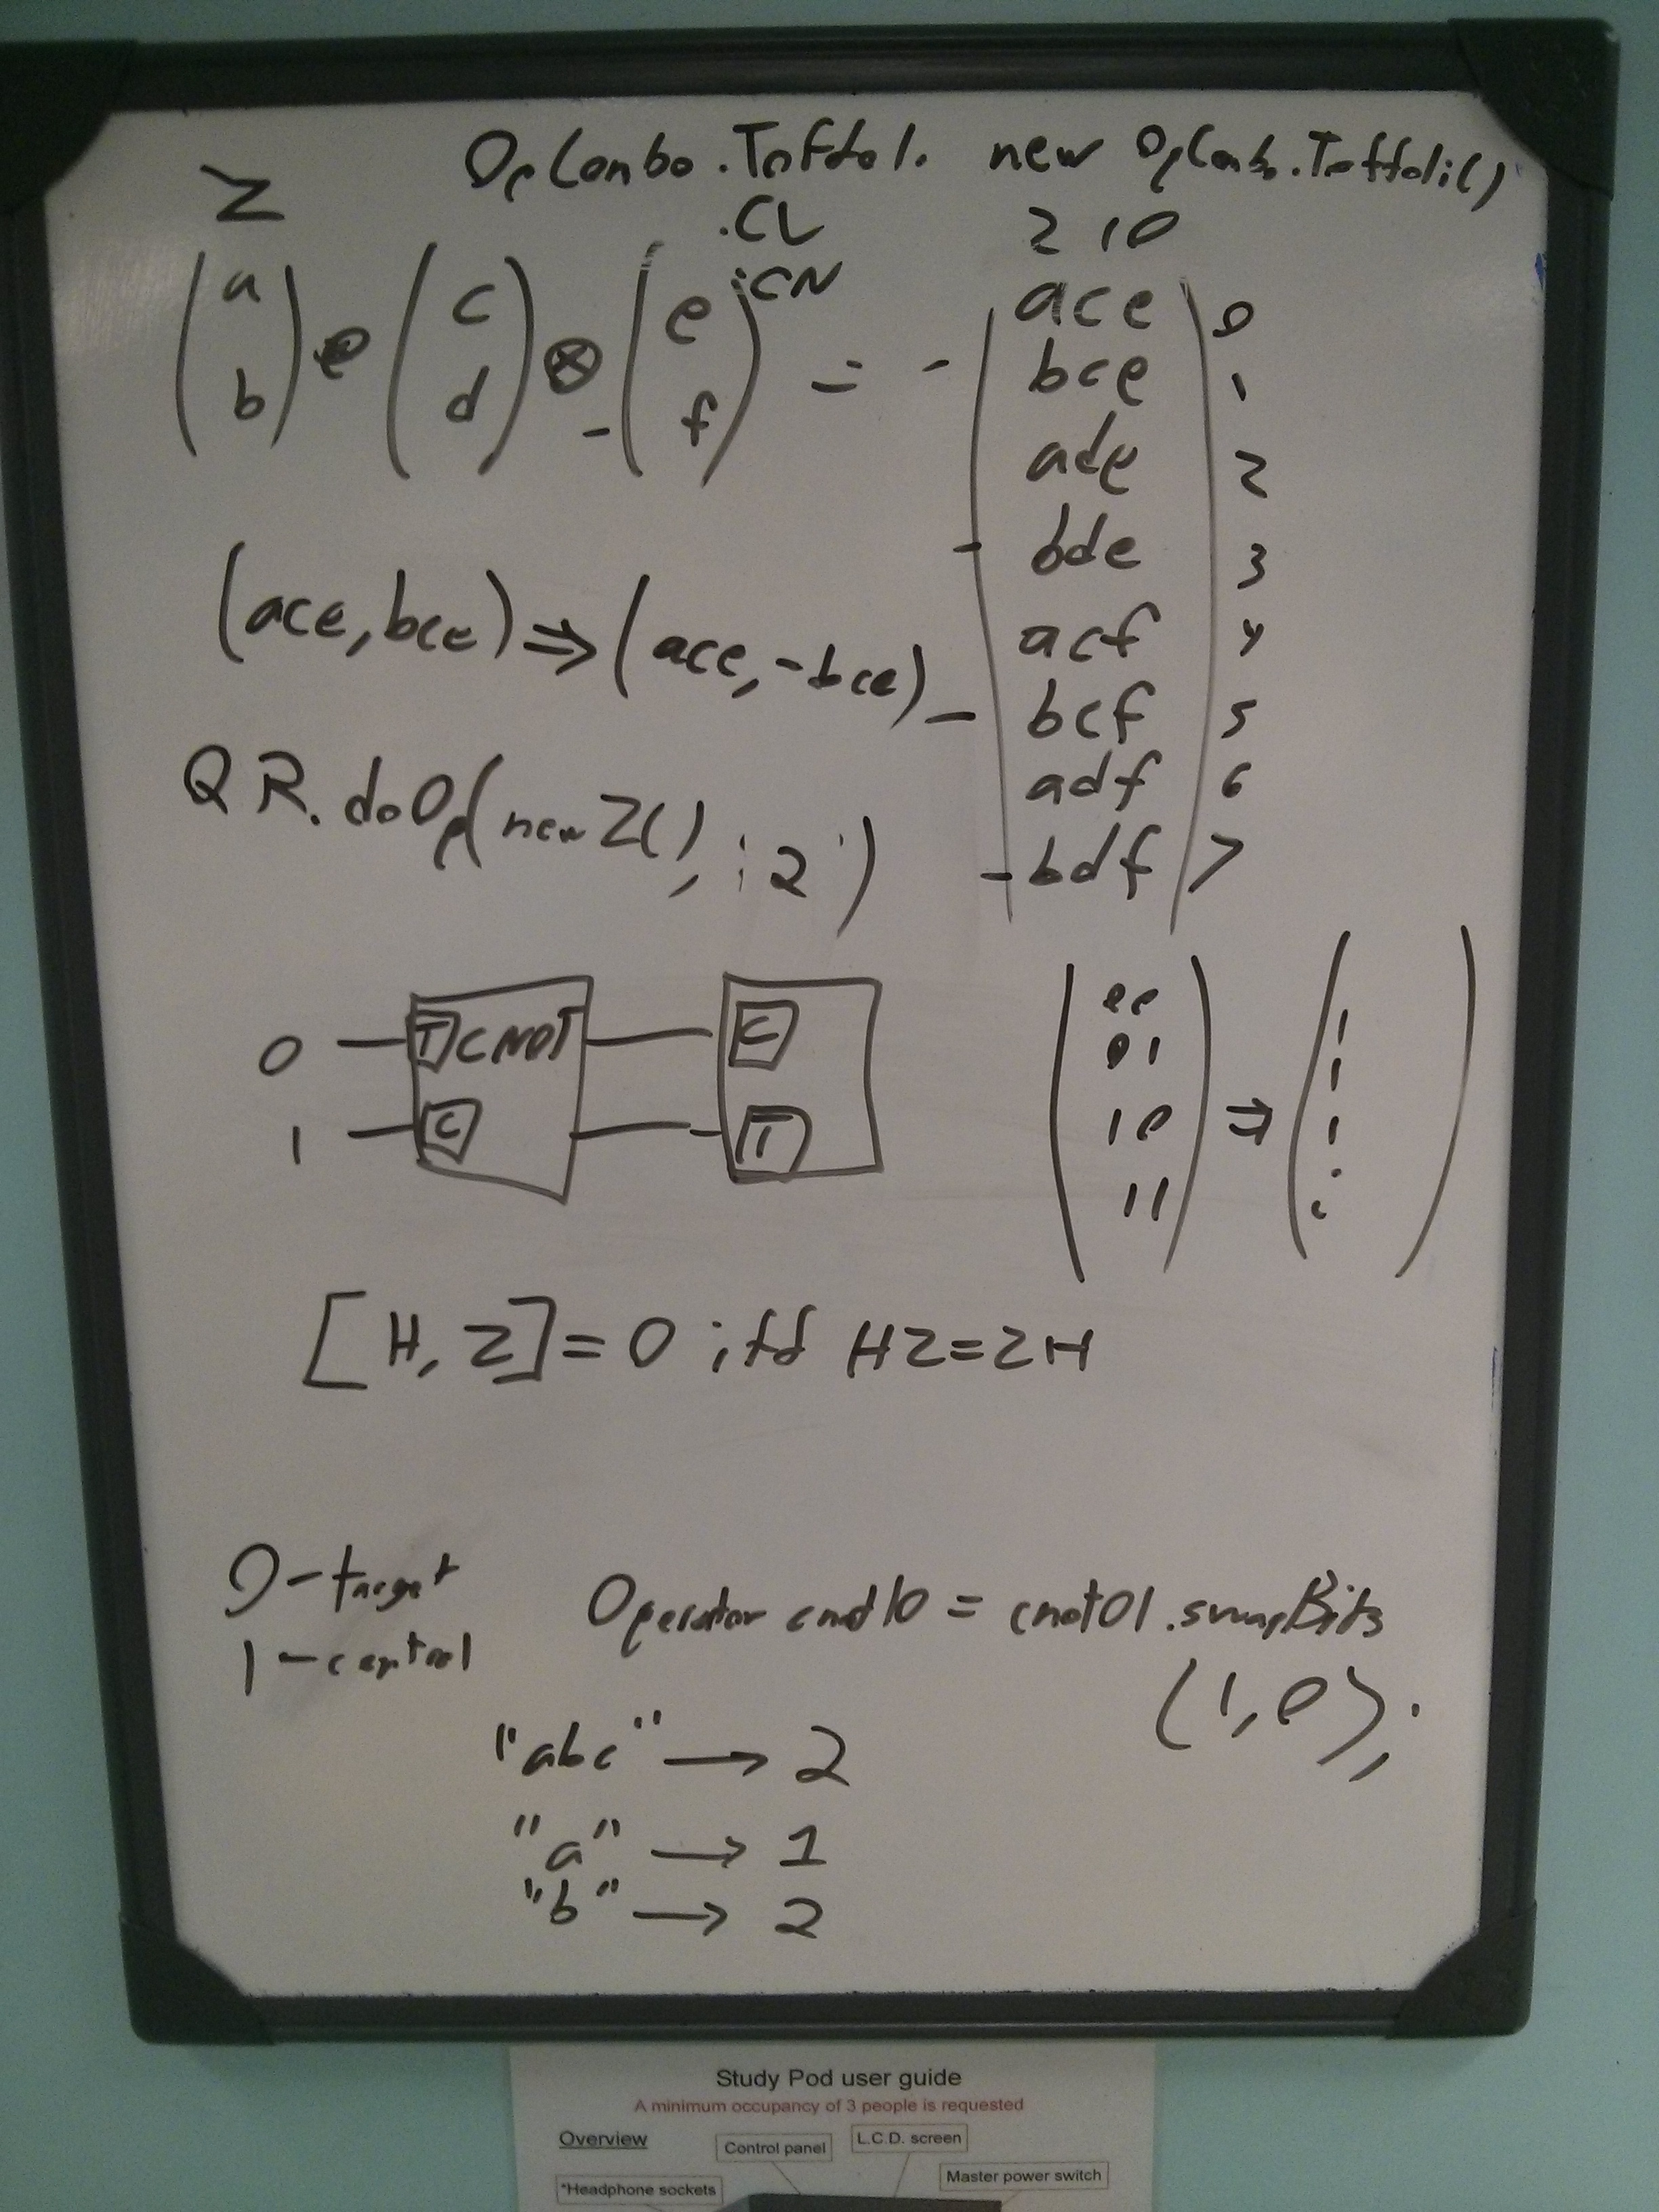 Z OpCombo.Toffoli. new OpComb.Toffoli()
.CL 2 1 0
.CN
(a b) ⊗ (c d) ⊗ (e f) =
ace 0
- bce 1
ade 2
- bde 3
acf 4
- bcf 5
adf 6
- bdf 7
(ace, bce) ⇒ (ace, -bce)
QR.doOp(new Z(), 2)
0 T CNOT C
1 C T
00
01
10 ⇒
11
[H, Z] = 0 iff HZ=ZH
0 - target
1 - control
Operator cnot10 = cnot01.swapBits
(1,0);
"abc" → 2
"a" → 1
"b" → 2
Study Pod user guide
A minimum occupancy of 3 people is requested
Overview
Control panel
L.C.D. screen
Master power switch
*Headphone sockets